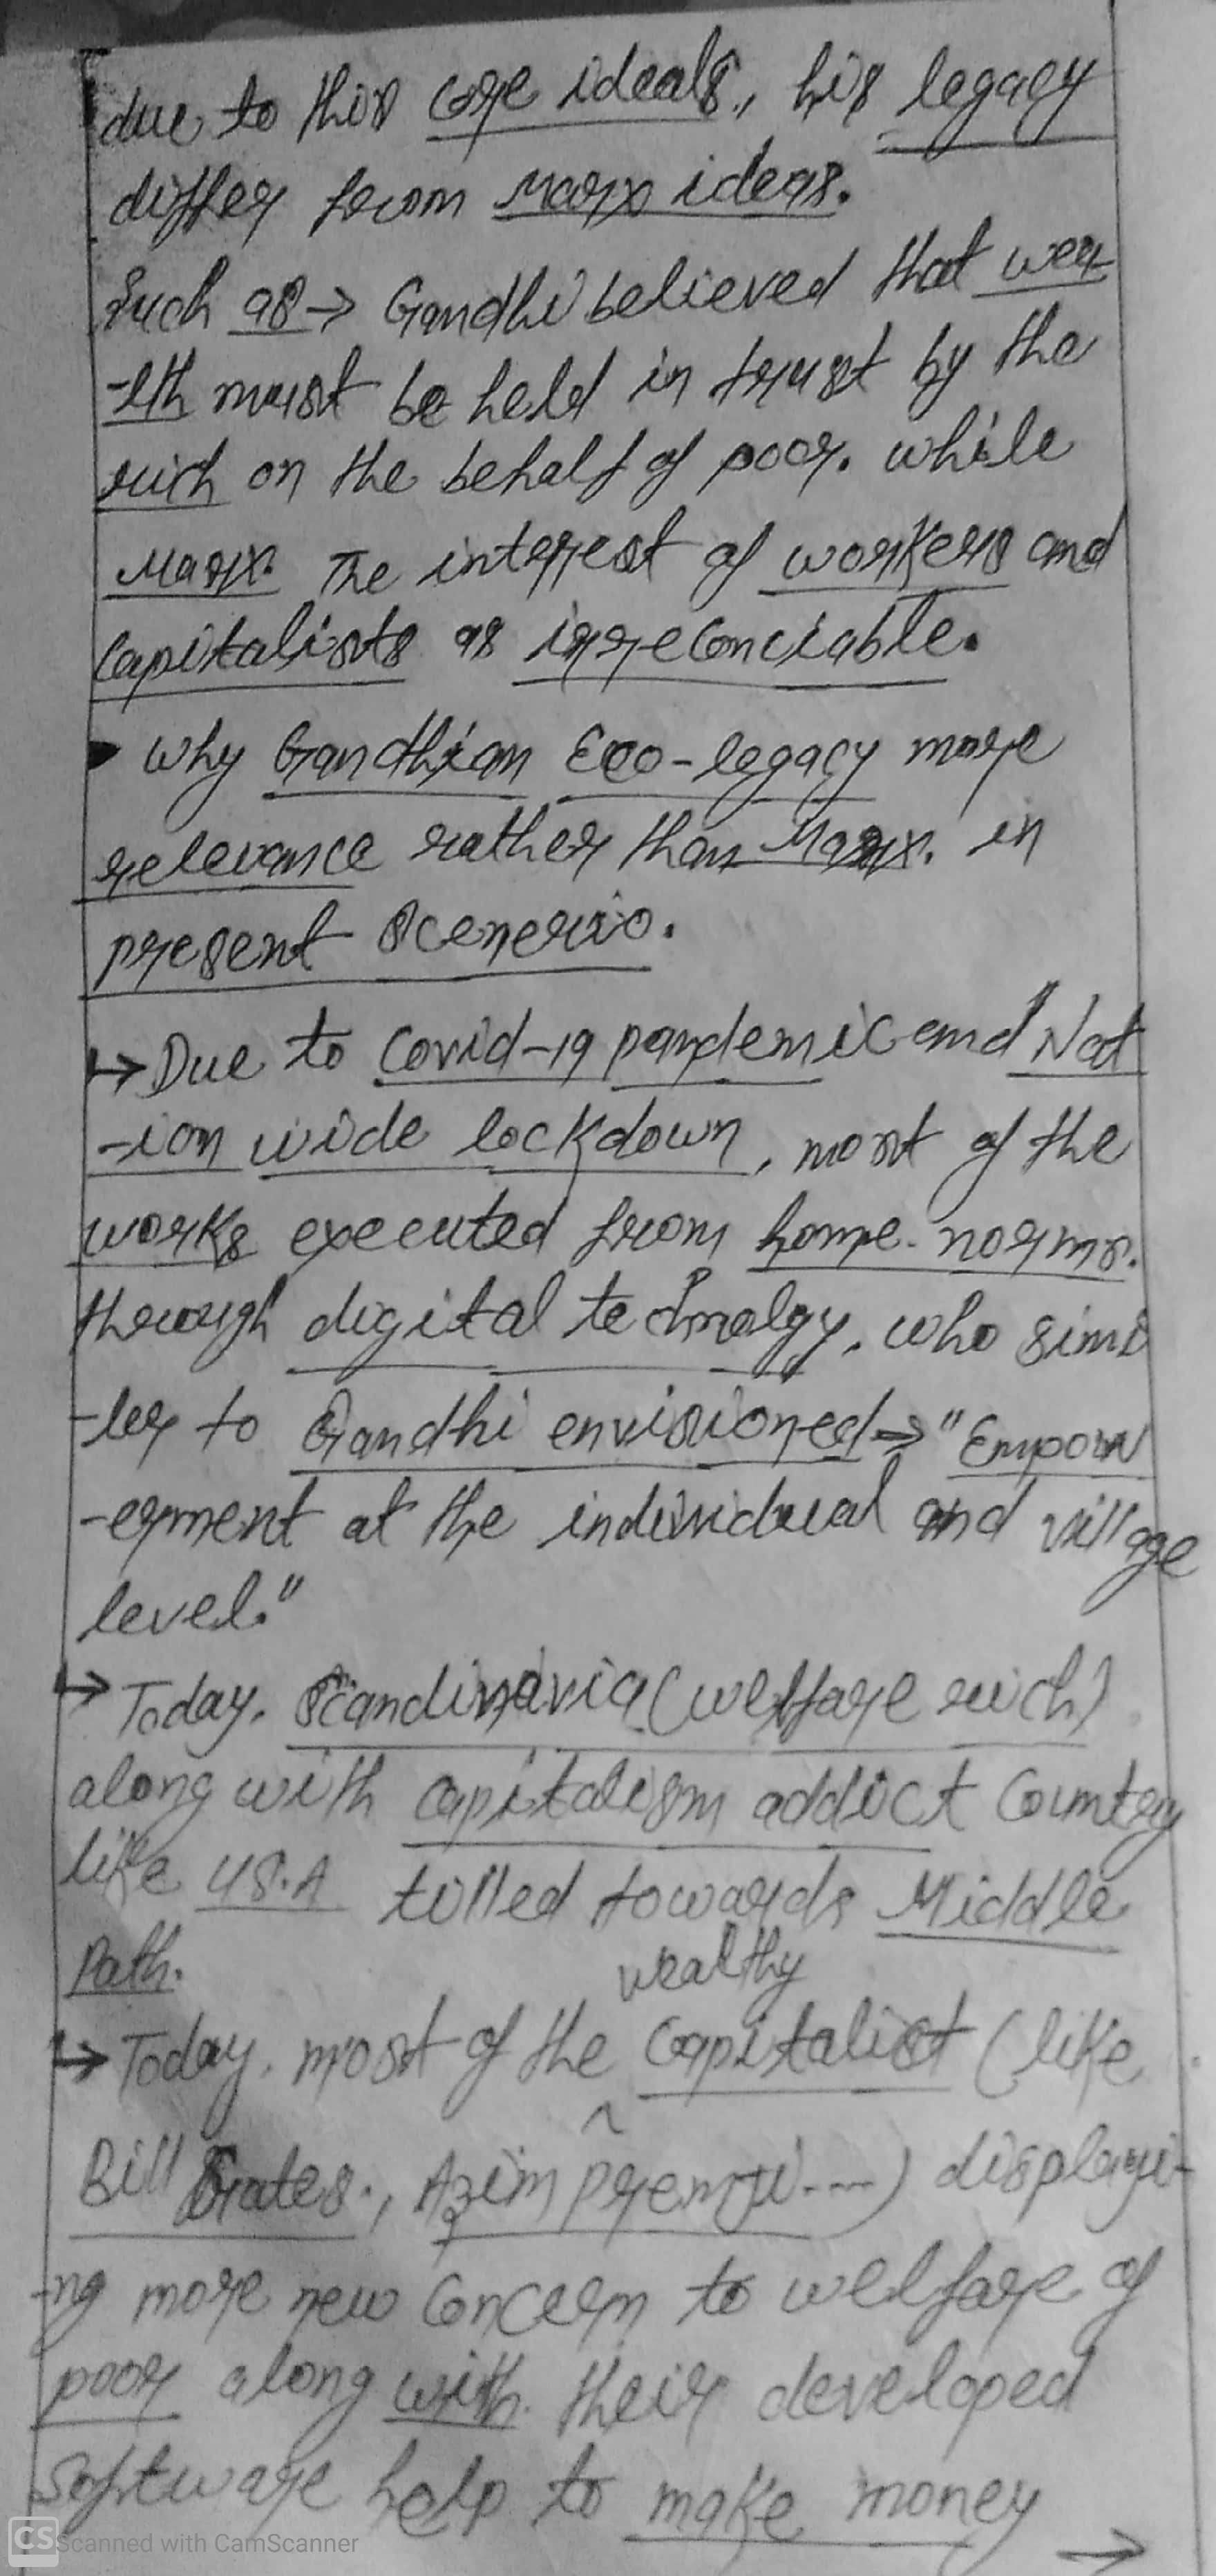 due to this core ideals, his legacy
differ from Marx ideas.
Such as → Gandhi believed that wea
-lth must be held in trust by the
rich on the behalf of poor. while
Marx. The interest of workers and
capitalists as irreconciable.
• Why Gandhian Eco-legacy more
relevance rather than Marx. in
present scenerio.
↳ Due to Covid-19 pandemic and Nat
-ion wide lockdown, most of the
works executed from home-norms.
through digital technolgy, who simi
-ler to Gandhi envisioned → "Empow
-erment at the individual and village
level."
↳ Today. Scandinavia (welfare rich)
along with capitalism addict Country
like U.S.A tilled towards Middle
Path.
wealthy
↳ Today. most of the Capitalist (like
Bill Gates., Azim premji...) displayi-
-ng more new concern to welfare of
poor along with their developed
Software help to make money
→
CS Scanned with CamScanner